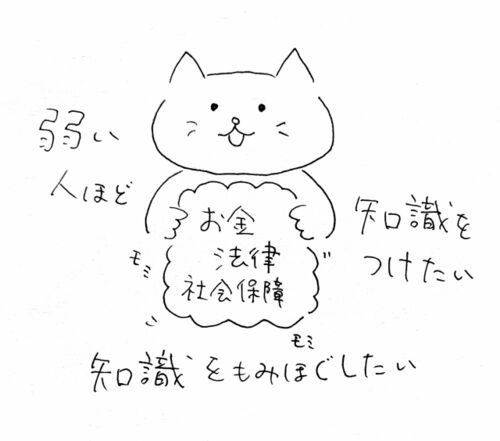 弱い
人ほど
知識を
つけたい
お金
法律
社会保障
モミ
モミ
知識をもみほぐしたい